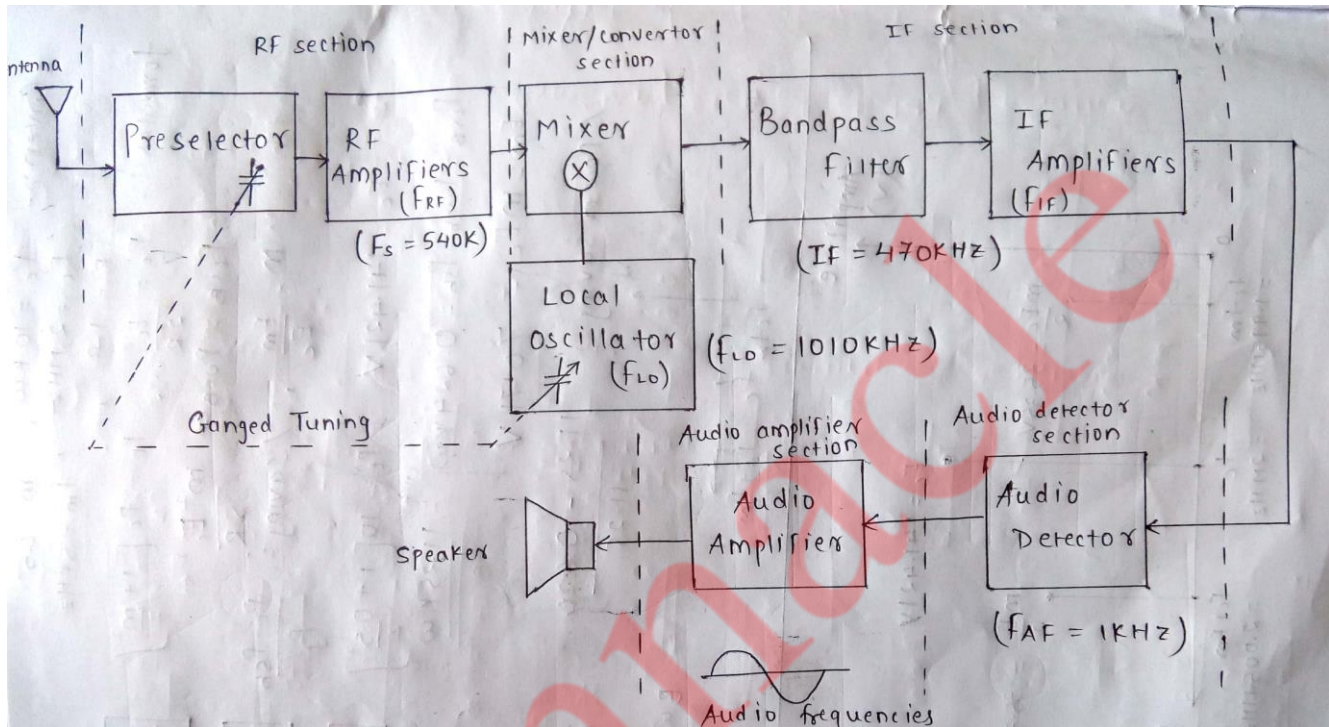 RF section
Mixer/convertor
section
IF section
ntenna
Preselector
RF
Amplifiers
(fRF)
(Fs = 540K)
Mixer
X
Bandpass
Filter
IF
Amplifiers
(fIF)
(IF = 470KHZ)
Local
Oscillator
(fLO)
(fLO = 1010KHZ)
Ganged Tuning
Audio amplifier
section
Audio detector
section
Audio
Detector
(fAF = 1KHZ)
Audio
Amplifier
Speaker
Audio frequencies
nacle